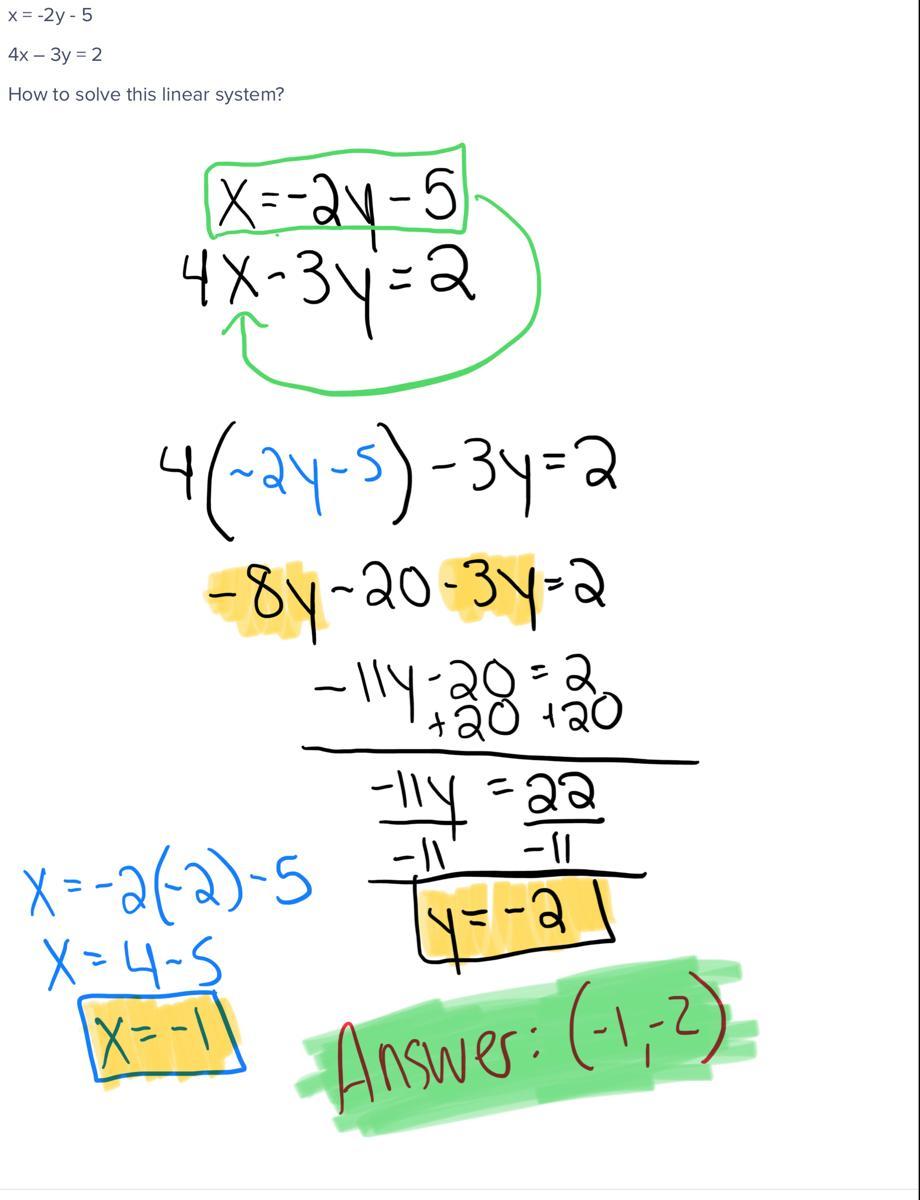 x = -2y - 5
4x – 3y = 2
How to solve this linear system?
x=-2y-5
4x-3y=2
4(-2y-5)-3y=2
-8y-20-3y=2
-11y-20=2
+20 +20
-11y = 22
-11 -11
y=-2
x=-2(-2)-5
x=4-5
x=-1
Answer: (-1,-2)